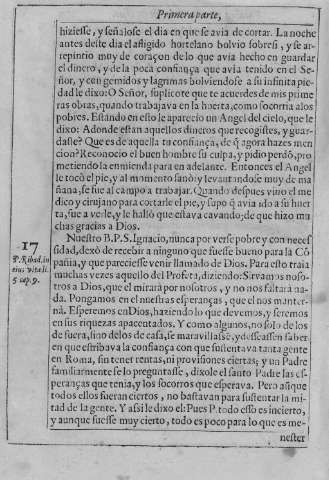 Primera parte,
hiziesse, y señalose el dia en que se auia de cortar. La noche
antes deste dia el afligido hortelano boluio sobresi, y se ar-
repintio muy de coraçon de lo que auia hecho en guardar
el dinero, y de la poca confiança que auia tenido en el Se-
ñor, y con gemidos y lagrimas boluiendose a su infinita pie-
dad le dixo: O Señor, suplicote que te acuerdes de mis prime
ras obras, quando trabajaua en la huerta, como socorria a los
pobres. Estando en esto le aparecio vn Angel del cielo, que le
dixo: Adonde estan aquellos dineros que recogistes, y guar-
daste? Que es de aquella tu confiança, de q̃ agora hazes men
cion? Reconocio el buen hombre su culpa, y pidio perdõ, pro
metiendo la enmienda para en adelante. Entonces el Angel
le tocò el pie, y al momento sanò: y leuantandose muy de ma
ñana, se fue al campo a trabajar. Quando despues vino el me
dico y cirujano para cortarle el pie, y supo q̃ auia ido a su huer
ta, fue a verle, y le hallò que estaua cauando; de que hizo mu
chas gracias a Dios.
17
P. Ribad. in
eius vita li.
5 cap. 9.
Nuestro B. P. S. Ignacio, nunca por verse pobre y con neces
sidad, dexò de recebir a ninguno que fuesse bueno para la Cõ
pañia, y que pareciesse venir llamado de Dios. Para esto traia
muchas vezes aquello del Profeta, diziendo: Siruamos noso-
tros a Dios, que el mirarà por nosotros, y no nos faltarà na-
da. Pongamos en el nuestras esperanças, que el nos manter-
nà. Esperemos en Dios, haziendo lo que deuemos, y seremos
en sus riquezas apacentados. Y como algunos, no solo de los
de fuera, sino de los de casa, se marauillasse, y desseassen saber
en que estribaua la confiança con que sustentaua tanta gente
en Roma, sin tener rentas, ni prouisiones ciertas; y vn Padre
familiarmente se lo preguntasse, dixole el santo Padre las es-
peranças que tenia, y los socorros que esperaua. Pero aũque
todos ellos fueran ciertos, no bastauan para sustentar la mi-
tad de la gente. Y assi le dixo el: Pues P. todo esso es incierto,
y aunque fuesse muy cierto, todo es poco para lo que es me-
nester